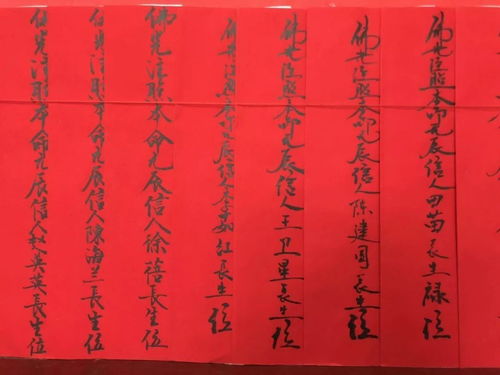 佛光注照本命元辰信人田苗长生禄位
佛光注照本命元辰信人陈建国长生位
佛光注照本命元辰信人王卫星长生位
佛光注照本命元辰信人李茹红長生位
佛光注照本命元辰信人徐蓓長生位
佛光注照本命元辰信人陳海兰長生位
佛光注照本命元辰信人赵英英長生位